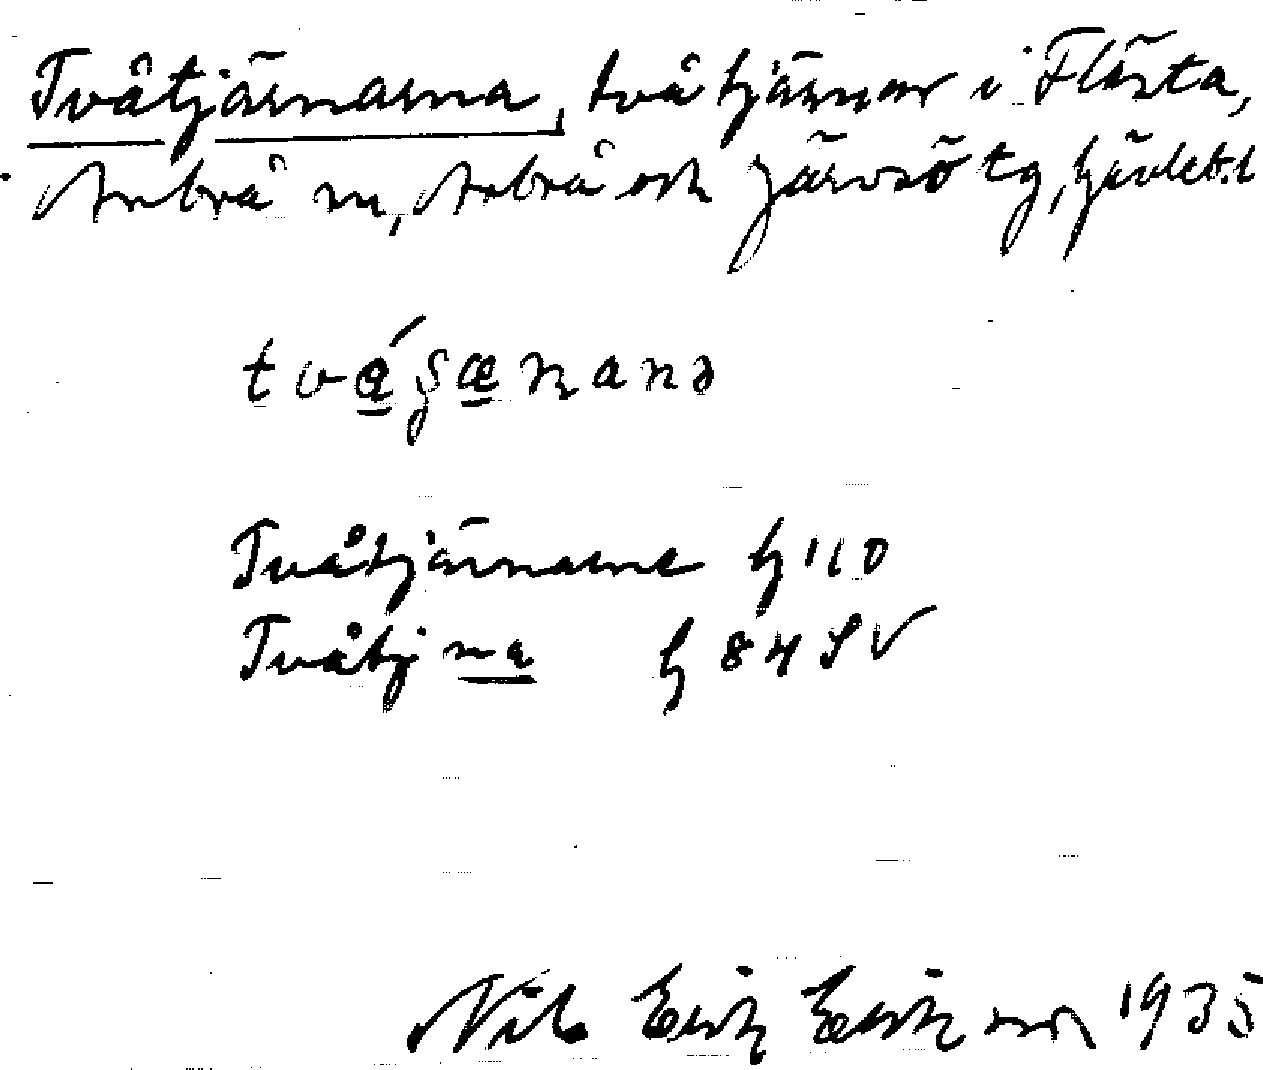 Tvåtjärnarna, två tjärnar i Flästa,
Arbrå sn, Arbrå och Järvsö tg, Gävleb.l
Tvåtjärnarna G 110
Tvåtj na G 84 SV
Nils Erik Eriksson 1935